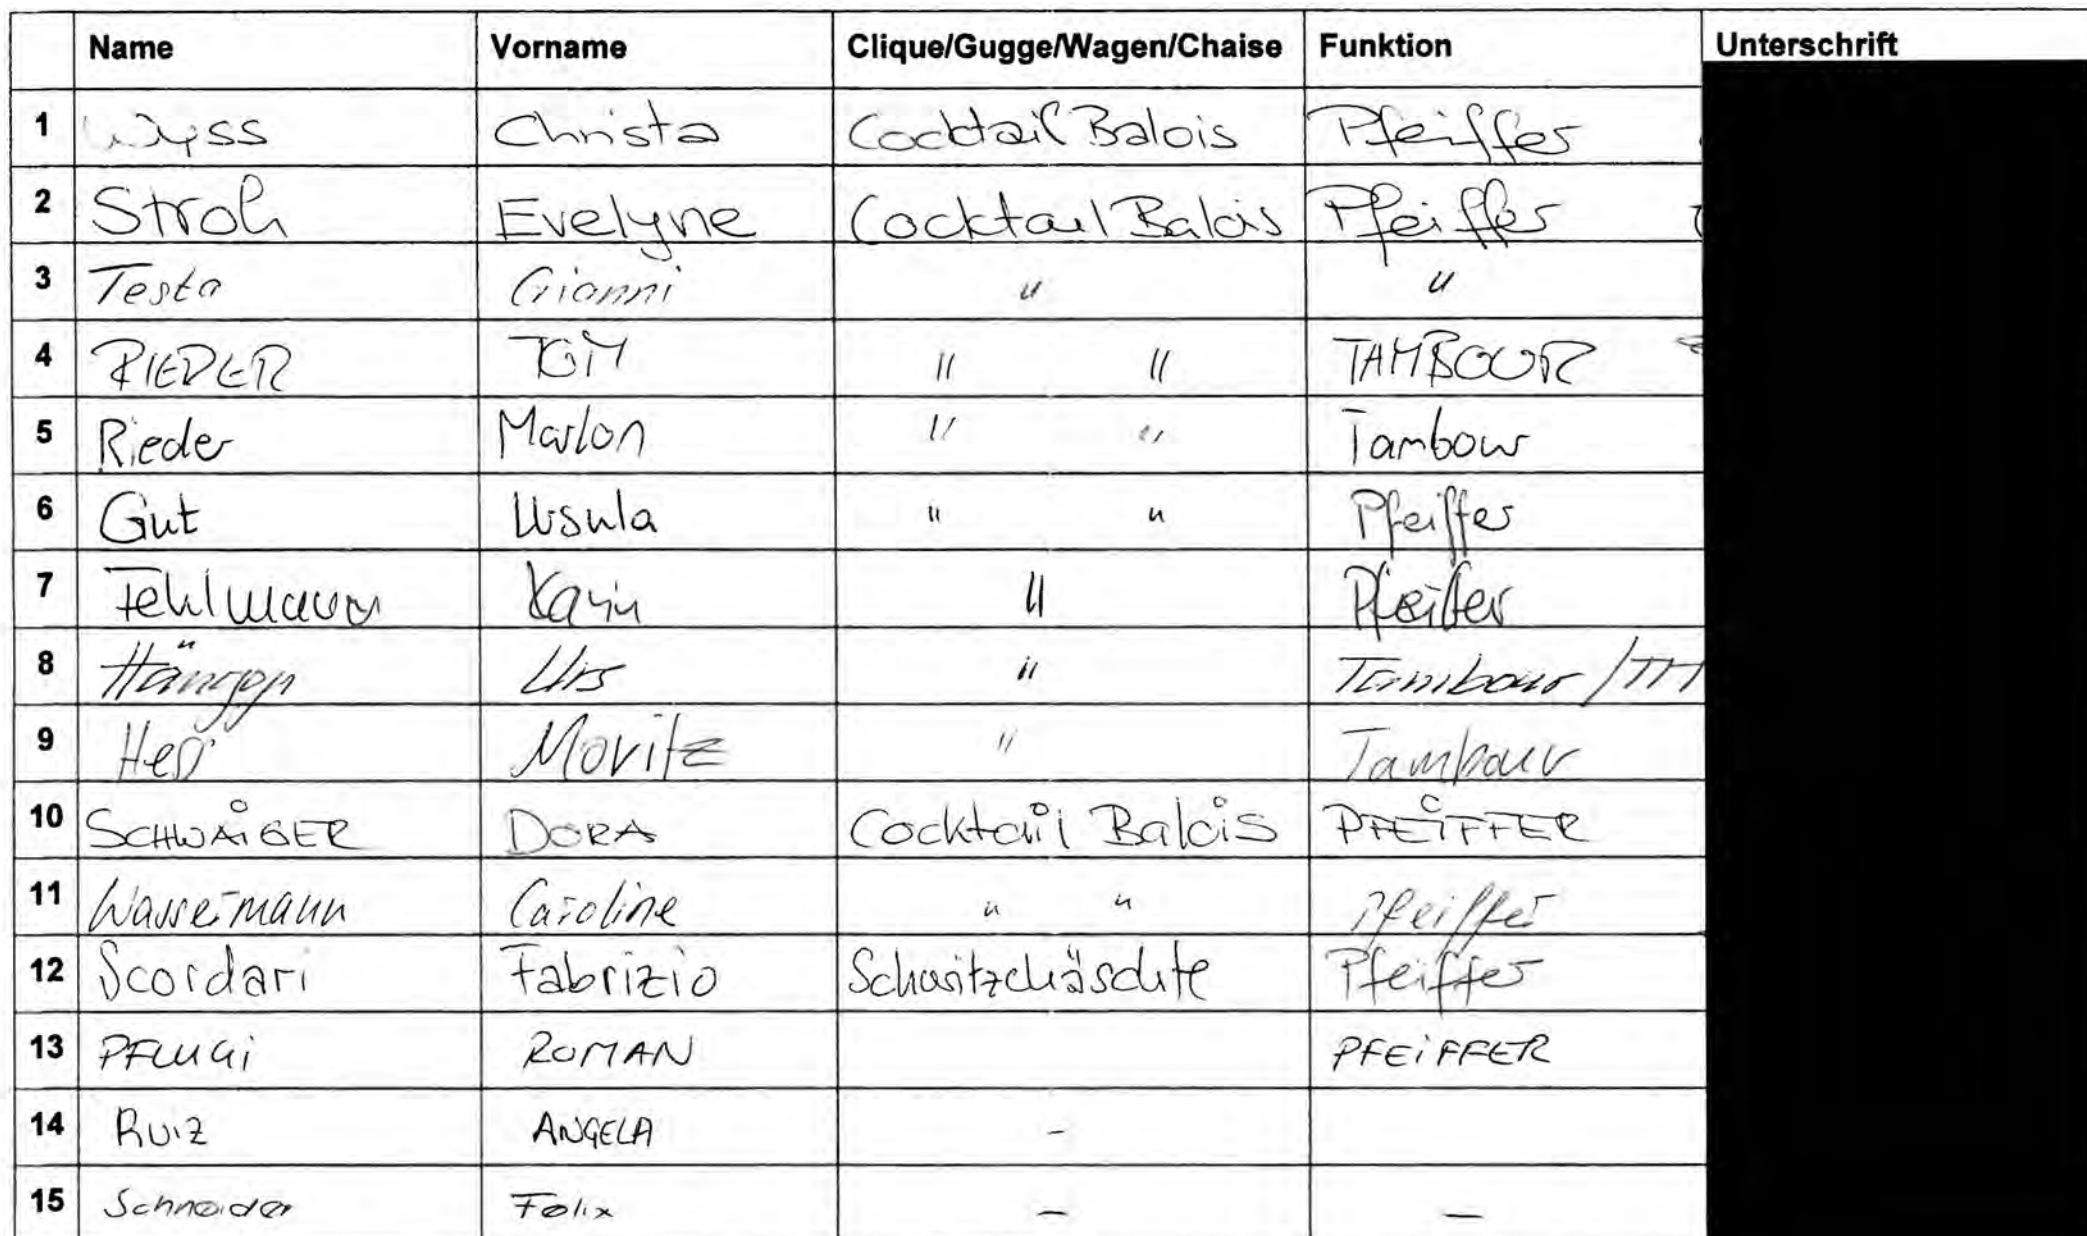 Name Vorname Clique/Gugge/Wagen/Chaise Funktion Unterschrift
1 Wyss Christa Cocktail Balois Pfeiffer
2 Stroh Evelyne Cocktail Balois Pfeiffer
3 Testa Gianni " "
4 RIEDER TOM " " TAMBOUR
5 Rieder Marlon " " Tambour
6 Gut Ursula " " Pfeiffer
7 Fehlmann Karin " Pfeiffer
8 Hänggi Urs " Tambour
9 Hess Moritz " Tambour
10 SCHWAIGER DORA Cocktail Balois PFEIFFER
11 Wassermann Caroline " " Pfeiffer
12 Scordari Fabrizio Schwitzchäschte Pfeiffer
13 PFLUGI ROMAN PFEIFFER
14 RUIZ ANGELA -
15 Schneider Felix - -